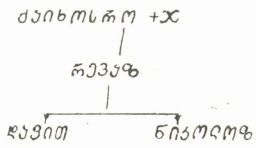 ქაიხოსრო +X
რევაზ
დავით ნიკოლოზ